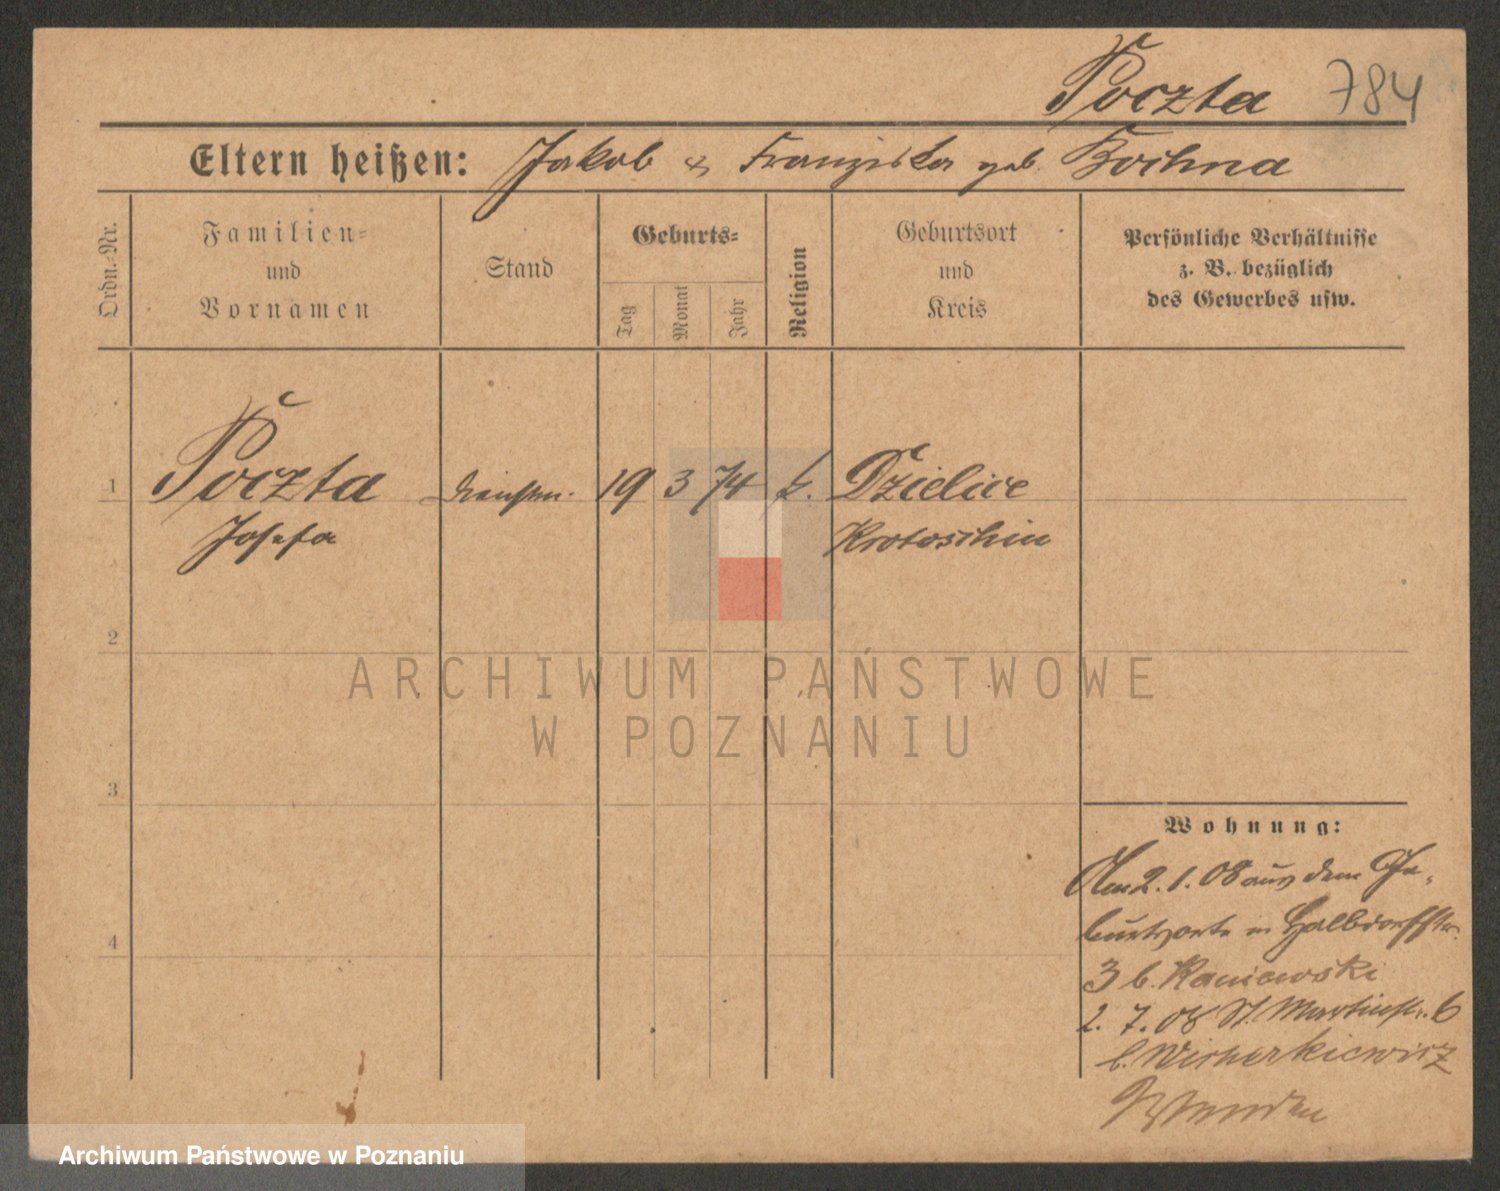 Poczta 784
Eltern heißen: Jakob & Franziska geb. Bochna
Ordn.-Nr.
Familien-
und
Vornamen
Stand
Geburts-
Tag
Monat
Jahr
Religion
Geburtsort
und
Kreis
Persönliche Verhältnisse
z. B. bezüglich
des Gewerbes usw.
1 Poczta 19 3 74 k. Dzielice
Josefa Krotoschin
2
3
4
ARCHIWUM PAŃSTWOWE
W POZNANIU
Wohnung:
Am 2.1.08 aus dem Ge-
burtsorte n Halbdorfstr.
3 b. Kaniewski
2. 7. 08 St. Martinstr. 6
b. Wicherkiewicz
Archiwum Państwowe w Poznaniu